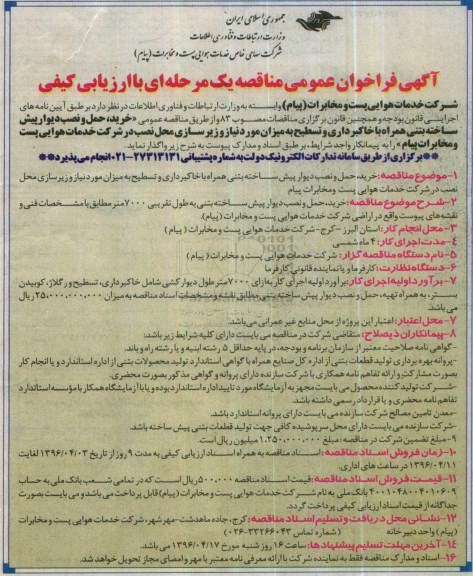 جمهوری اسلامی ایران
وزارت ارتباطات و فناوری اطلاعات
شرکت سهامی خاص خدمات هوایی پست و مخابرات (پیام)
آگهی فراخوان عمومی مناقصه یک مرحله‌ای با ارزیابی کیفی
شرکت خدمات هوایی پست و مخابرات (پیام) وابسته به وزارت ارتباطات و فناوری اطلاعات در نظر دارد بر طبق آیین نامه های
اجرایی قانون بودجه و همچنین قانون برگزاری مناقصات مصوب ۸۳ از طریق مناقصه عمومی «خرید، حمل و نصب دیوار پیش
ساخته بتنی همراه با خاکبرداری و تسطیح به میزان مورد نیاز و زیرسازی محل نصب در شرکت خدمات هوایی پست
و مخابرات پیام» را به پیمانکار واجد شرایط، بر طبق اسناد و مدارک پیوست به شرح زیر واگذار نماید.
**برگزاری از طریق سامانه تدارکات الکترونیک دولت به شماره پشتیبانی ۲۷۳۱۳۱۳۱-۰۲۱ انجام می پذیرد**
۱-موضوع مناقصه: خرید، حمل و نصب دیوار پیش ساخته بتنی همراه با خاکبرداری و تسطیح به میزان مورد نیاز و زیرسازی محل
نصب در شرکت خدمات هوایی پست و مخابرات پیام
۲-شرح موضوع مناقصه: خرید، حمل و نصب دیوار پیش ساخته بتنی به طول تقریبی ۷۰۰۰ متر مطابق با مشخصات فنی و
نقشه های پیوست واقع در اراضی شرکت خدمات هوایی پست و مخابرات (پیام).
۳-محل انجام کار: استان البرز - کرج - شرکت خدمات هوایی پست و مخابرات (پیام)
۴-مدت اجرای کار: ۴ ماه شمسی
۵-نام دستگاه مناقصه گزار: شرکت خدمات هوایی پست و مخابرات (پیام)
۶-دستگاه نظارت: کارفرما و یا نماینده قانونی کارفرما
۷-برآورد اولیه اجرای کار: برآورد اولیه اجرای کار به ازای ۷۰۰۰ متر طول دیوارکشی شامل خاکبرداری، تسطیح و رگلاژ، کوبیدن
بستر، به همراه تهیه، حمل و نصب دیوار پیش ساخته بتنی مطابق نقشه و مشخصات اسناد مناقصه به میزان ۲۵,۰۰۰,۰۰۰,۰۰۰ ریال
می باشد.
۷-محل اعتبار: اعتبار این پروژه از محل منابع غیر عمرانی می باشد.
۸-پیمانکاران ذیصلاح: متقاضی شرکت در مناقصه می بایست دارای کلیه شرایط زیر باشد:
-گواهی نامه صلاحیت معتبر از سازمان برنامه و بودجه، در پایه حداقل ۵ رشته ابنیه و یا رشته راه و باند.
-پروانه بهره برداری تولید قطعات بتنی از اداره کل صنایع همراه با گواهی استاندارد تولید محصولات بتنی از اداره استاندارد و یا انجام کار
بصورت مشارکت و ارائه تفاهم نامه همکاری با شرکت سازنده دارای پروانه و گواهی مذکور بصورت محضری.
-شرکت تولید کننده محصول می بایست مجهز به آزمایشگاه مورد تایید اداره استاندارد بوده و یا با آزمایشگاه همکار با مؤسسه استاندارد
تفاهم نامه محضری و یا قرارداد رسمی داشته باشد.
-معدن تامین مصالح شرکت سازنده می بایست دارای پروانه استاندارد باشد.
-شرکت سازنده می بایست دارای محل سرپوشیده کافی جهت تولید قطعات بتنی پیش ساخته باشد.
۹-مبلغ تضمین شرکت در مناقصه: مبلغ ۱,۲۵۰,۰۰۰,۰۰۰ میلیون ریال است.
۱۰-زمان فروش اسناد مناقصه: اسناد مناقصه به همراه اسناد ارزیابی کیفی به مدت ۹ روز از تاریخ ۱۳۹۶/۰۴/۰۳ لغایت
۱۳۹۶/۰۴/۱۱ در ساعت های اداری.
۱۱-قیمت فروش اسناد مناقصه: قیمت اسناد مناقصه ۵۰۰,۰۰۰ ریال است که در تمامی شعب بانک ملی به حساب
۴۰۰۱۰۴۸۰۰۴۰۱۰۶۰۹ بانک ملی به نام شرکت خدمات هوایی پست و مخابرات (پیام) قابل پرداخت می باشد و می بایست بصورت
جداگانه از قیمت اسناد ارزیابی کیفی پرداخت گردد.
۱۲-نشانی محل دریافت و تسلیم اسناد مناقصه: کرج، جاده ماهدشت-مهرشهر، شرکت خدمات هوایی پست و مخابرات
(پیام) واحد دبیرخانه (شماره تماس ۳۳۲۶۶۰۴۳-۰۲۶)
۱۴-آخرین مهلت تسلیم پیشنهادها: ساعت ۱۶ روز شنبه مورخ ۱۳۹۶/۰۴/۱۷ می باشد.
۱۶-اسناد و مدارک مناقصه فقط به نماینده شرکت با ارائه معرفی نامه معتبر با مهر و امضای مجاز تحویل خواهد شد.